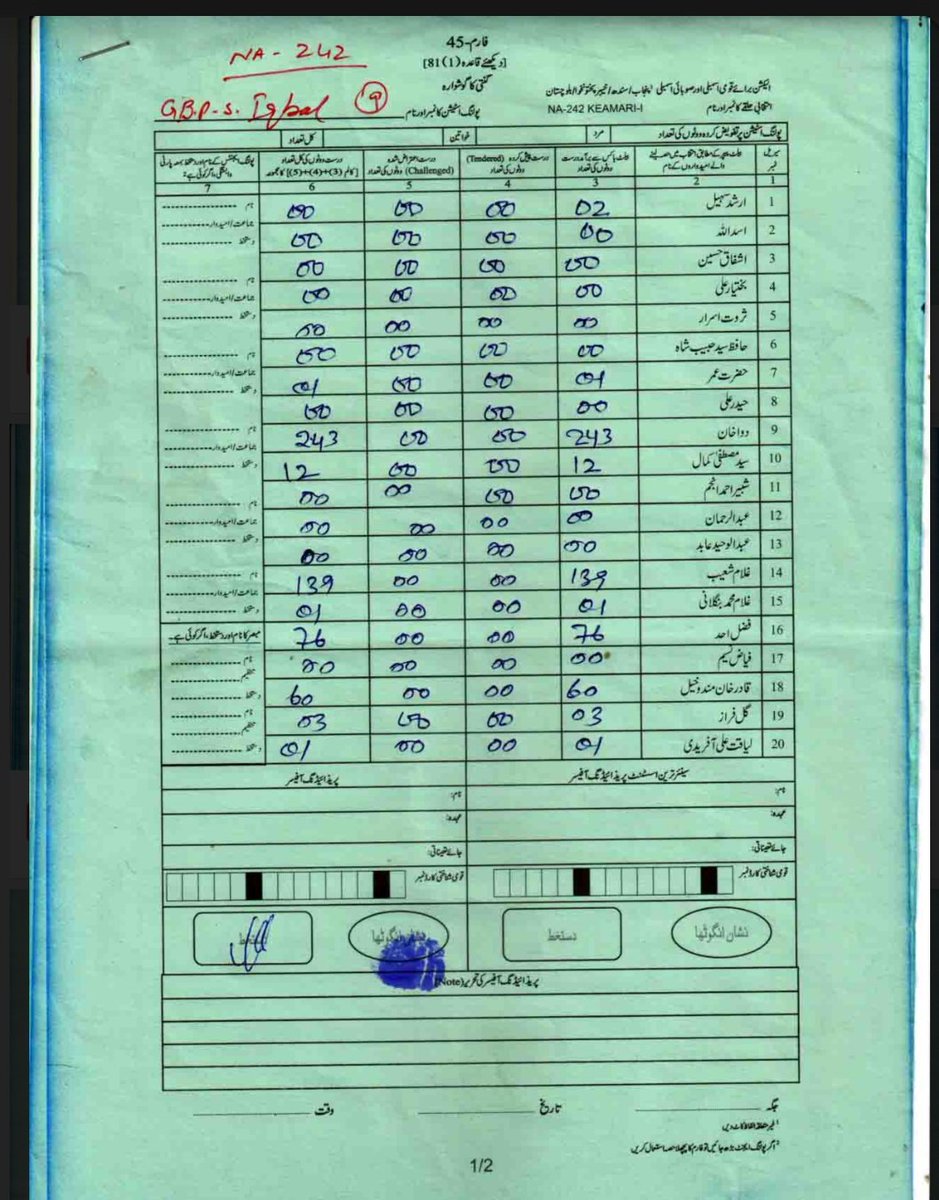 فارم-45
NA - 242
[دیکھئے قاعدہ (1)81]
گنتی کا گوشوارہ
الیکشن برائے قومی اسمبلی اور صوبائی اسمبلی پنجاب/سندھ/خیبر پختونخوا/بلوچستان
انتخابی حلقے کا نمبر اور نام NA-242 KEAMARI-I پولنگ اسٹیشن کا نمبر اور نام G.B.P.S. Iqbal 9
پولنگ اسٹیشن پر تفویض کردہ ووٹوں کی تعداد مرد خواتین کل تعداد
سیریل نمبر
بیلٹ پیپر کے مطابق انتخاب میں حصہ لینے والے امیدواروں کے نام
بیلٹ باکس سے برآمد درست ووٹوں کی تعداد
درست پیش کردہ (Tendered) ووٹوں کی تعداد
درست اعتراض شدہ (Challenged) ووٹوں کی تعداد
درست ووٹوں کی کل تعداد [کالم (3)+(4)+(5) کا مجموعہ]
1 2 3 4 5 6 7
1 ارشد سہیل 02 00 00 00
2 اسد اللہ 00 00 00 00
3 اشفاق حسین 00 00 00 00
4 بختیار علی 00 00 00 00
5 ثروت اسرار 00 00 00 00
6 حافظ سید حبیب شاہ 00 00 00 00
7 حضرت عمر 01 00 00 01
8 حیدر علی 00 00 00 00
9 دوا خان 243 00 00 243
10 سید مصطفیٰ کمال 12 00 00 12
11 شبیر احمد انجم 00 00 00 00
12 عبدالرحمان 00 00 00 00
13 عبدالوحید عابد 00 00 00 00
14 غلام شعیب 139 00 00 139
15 غلام محمد بنگلانی 01 00 00 01
16 فضل احد 76 00 00 76
17 فیاض نسیم 00 00 00 00
18 قادر خان مندوخیل 60 00 00 60
19 گل فراز 03 00 00 03
20 لیاقت علی آفریدی 01 00 00 01
نام
جماعت/امیدوار
دستخط
نام
جماعت/امیدوار
دستخط
نام
جماعت/امیدوار
دستخط
نام
جماعت/امیدوار
دستخط
نام
جماعت/امیدوار
دستخط
نام
جماعت/امیدوار
دستخط
مبصر کا نام اور دستخط، اگر کوئی ہے۔
نام
تنظیم
دستخط
نام
تنظیم
دستخط
سینئر ترین اسسٹنٹ پریذائیڈنگ آفیسر پریذائیڈنگ آفیسر
نام: نام:
عہدہ: عہدہ:
جائے تعیناتی: جائے تعیناتی:
قومی شناختی کارڈ نمبر قومی شناختی کارڈ نمبر
نشان انگوٹھا دستخط نشان انگوٹھا دستخط
پریذائیڈنگ آفیسر کی تحریر (Note)
جگہ تاریخ وقت
1 غیر متعلقہ الفاظ کاٹ دیں
2 اگر پولنگ ایجنٹ بڑھ جائیں تو فارم کا پچھلا حصہ استعمال کریں
1/2